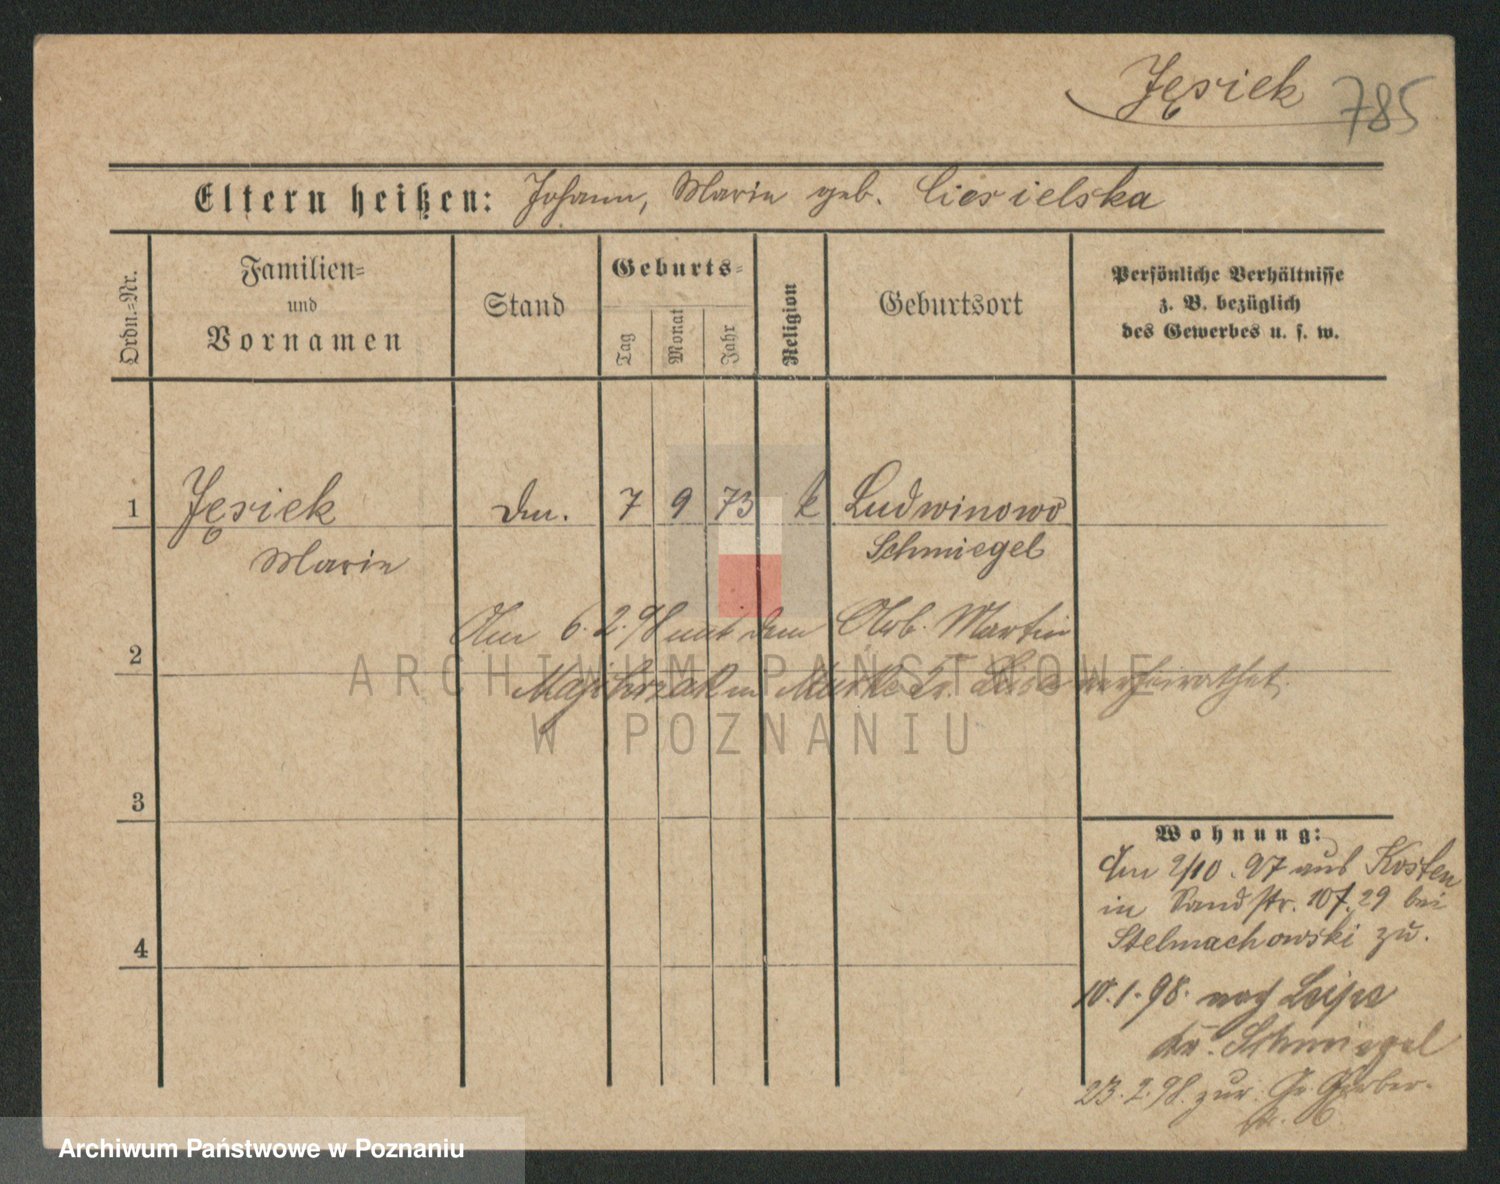 Jęsiek 785
Eltern heißen: Johann, Marie geb. Ciesielska
Ordn.-Nr.
Familien-
und
Vornamen
Stand
Geburts-
Tag
Monat
Jahr
Religion
Geburtsort
Persönliche Verhältnisse
z. B. bezüglich
des Gewerbes u. s. w.
1 Jęsiek 7 9 73 k Ludwinowo
Marie Schmiegel
Am 6.2.98 mit dem Arb. Martin
2 in verheirathet.
ARCHIWUM PAŃSTWOWE
W POZNANIU
3
Wohnung:
Am 2/10.97 aus Kosten
in Sandstr. 10 29 bei
Stelmachowski zu.
4
10.1.98. nach Leipe
Kr. Schmiegel
23.2.98. zur Gr. Gerber-
Archiwum Państwowe w Poznaniu